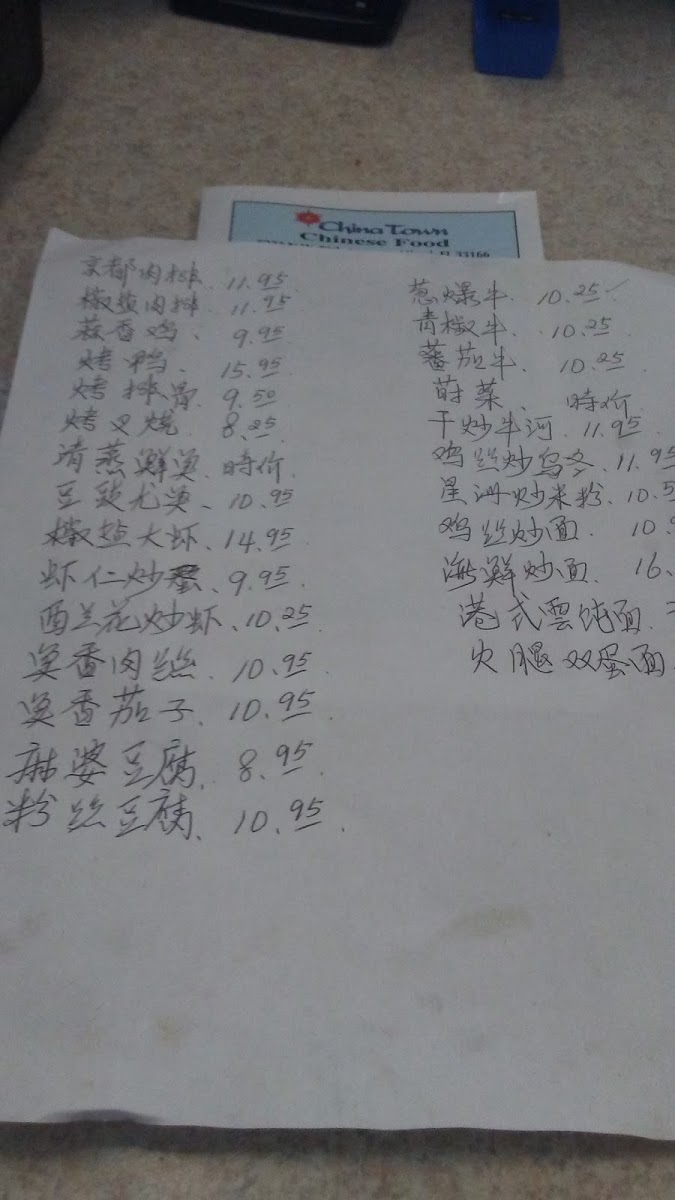 China Town
Chinese Food
33166
京都肉排 11.95
椒盐肉排 11.95
蒜香鸡、 9.95
烤鸭、 15.95
烤排骨 9.50
烤叉烧 8.25
清蒸鲜鱼 時价
豆豉尤鱼、10.95
椒盐大虾、14.95
虾仁炒蛋、9.95
西兰花炒虾、10.25
鱼香肉丝 10.95
鱼香茄子、10.95
麻婆豆腐、8.95
粉丝豆腐、10.95
葱爆牛 10.25
青椒牛、10.25
蕃茄牛、10.25
莳菜、時价
干炒牛河、11.95
鸡丝炒乌冬、11.95
星洲炒米粉、10.5
鸡丝炒面 10.
海鲜炒面、16.
港式雲饨面、
火腿双蛋面